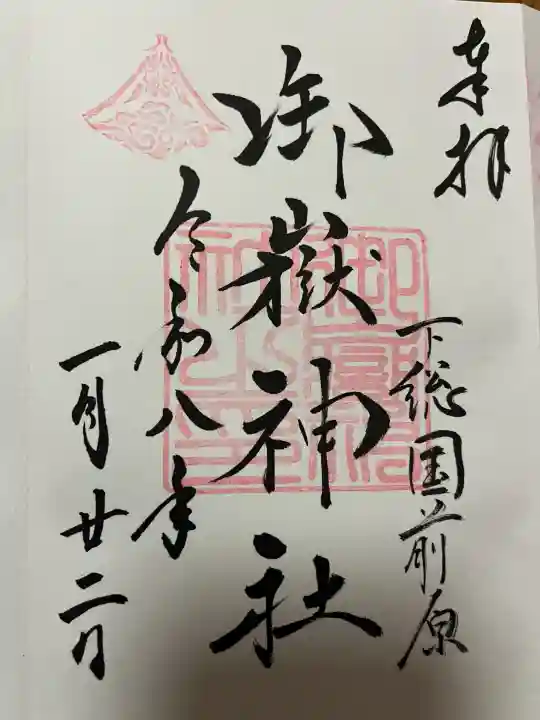 奉拝
下総国前原
御嶽神社
令和八年
一月廿二日